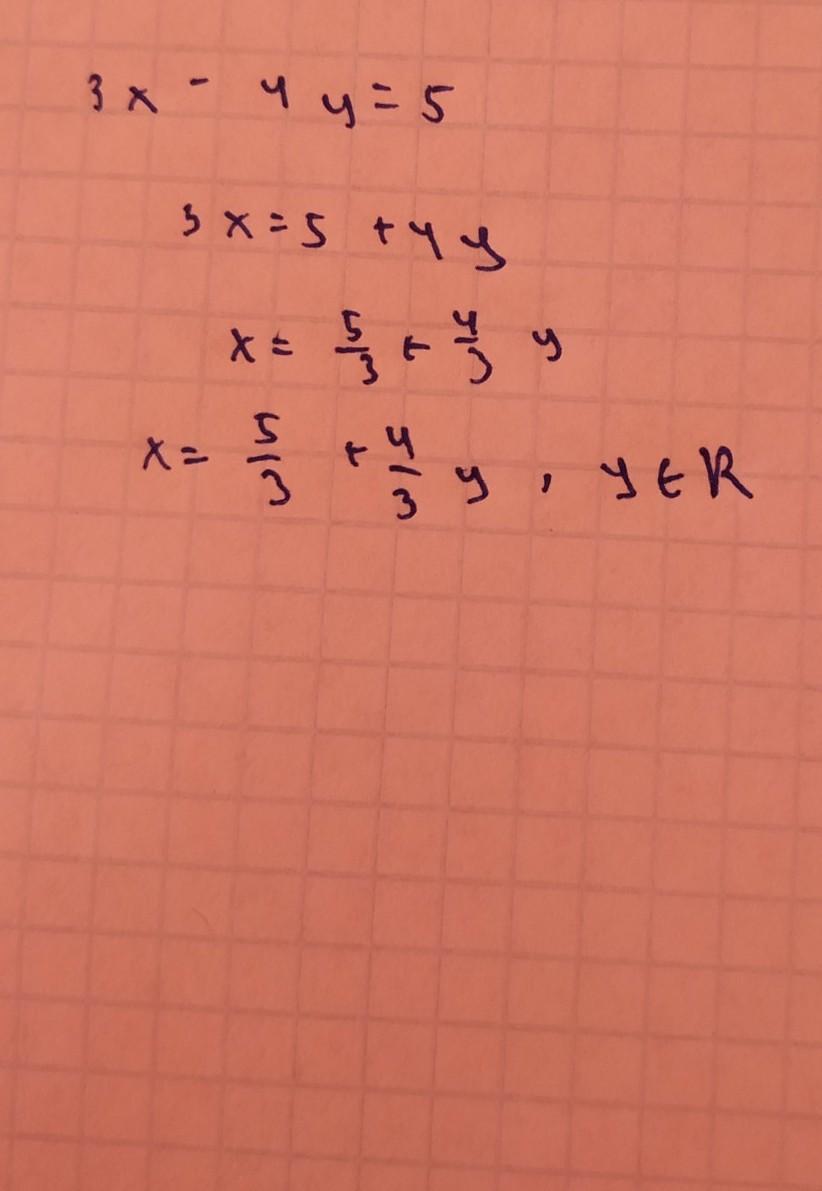 3x - 4y = 5
3x = 5 + 4y
x = 5/3 + 4/3 y
x = 5/3 + 4/3 y, y ∈ R